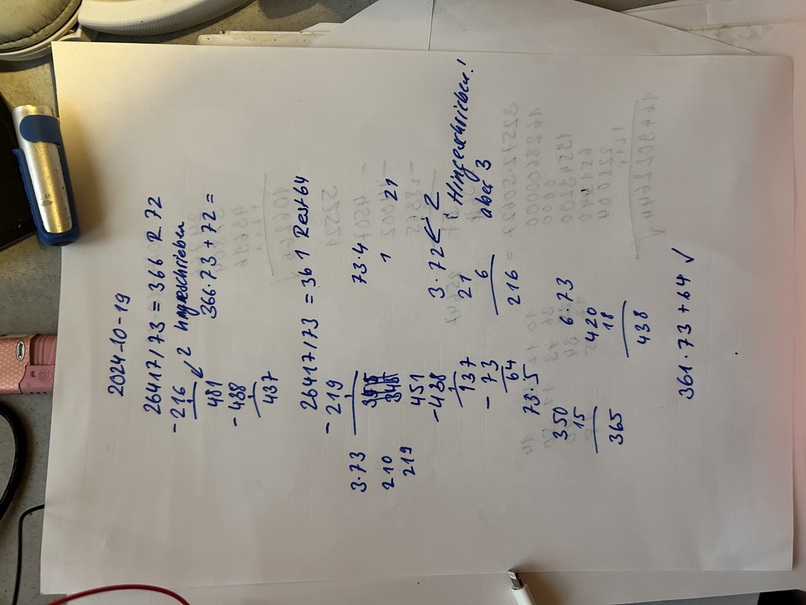 2024-10-19
26417/73 = 366 R 72
-216 ↙ 2 hingeschrieben
481
366·73+72 =
-438
437
26417/73 = 361 Rest 64
-219
3·73
73·4
210
1 21
219
451
-438
137
-73
64
3·72 ← 2
21
6
216
! Hingeschrieben!
aber 3
73·5
350
15
365
6·73
420
18
438
361·73+64 ✓